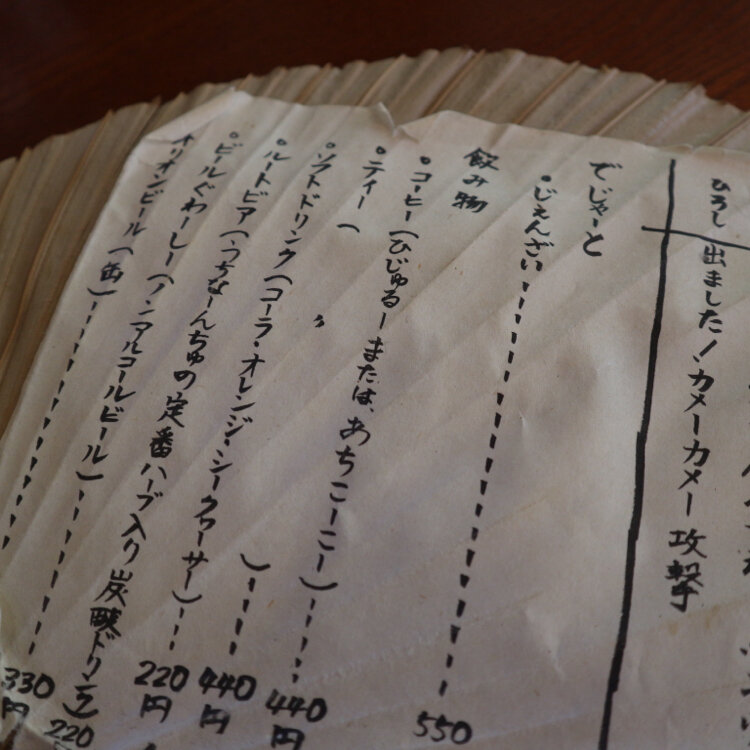 ひろし 出ました!カメーカメー攻撃
でじゃーと
・じぇんざい・・・・・・・・・・550
飲み物
・コーヒー(ひじゅるーまたは、あちこーこー)・・・・440円
・ティー(〃)・・・・440円
・ソフトドリンク(コーラ・オレンジ・シークワーサー)・・・220円
・ルートビア(うちなーんちゅの定番ハーブ入り炭酸ドリンク)220
・ビールぐわーしー(ノンアルコールビール)・・・・・・330円
オリオンビール(缶)・・・・・・・・・・